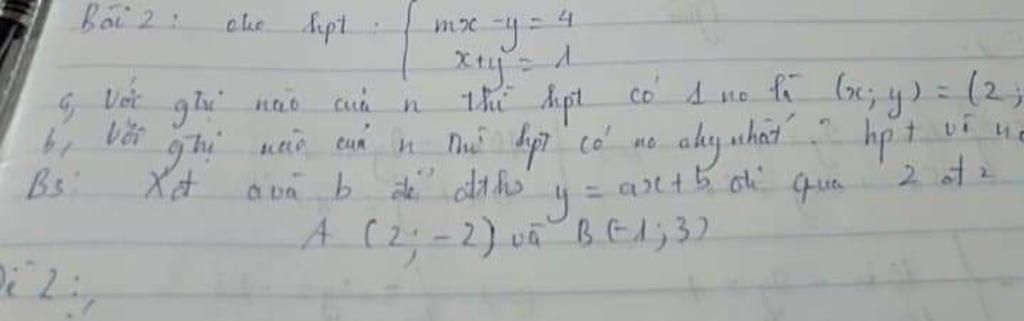 Bài 2: cho hpt: { mx - y = 4
x + y = 1
a, Với gtrị nào của n thì hpt có 1 no là (x; y) = (2;
b, Với gtrị nào của n thì hpt có no duy nhất? hpt vô no
B3: Xđ a và b để đtho y = ax + b đi qua 2 đt
A (2; -2) và B (-1; 3)
2: